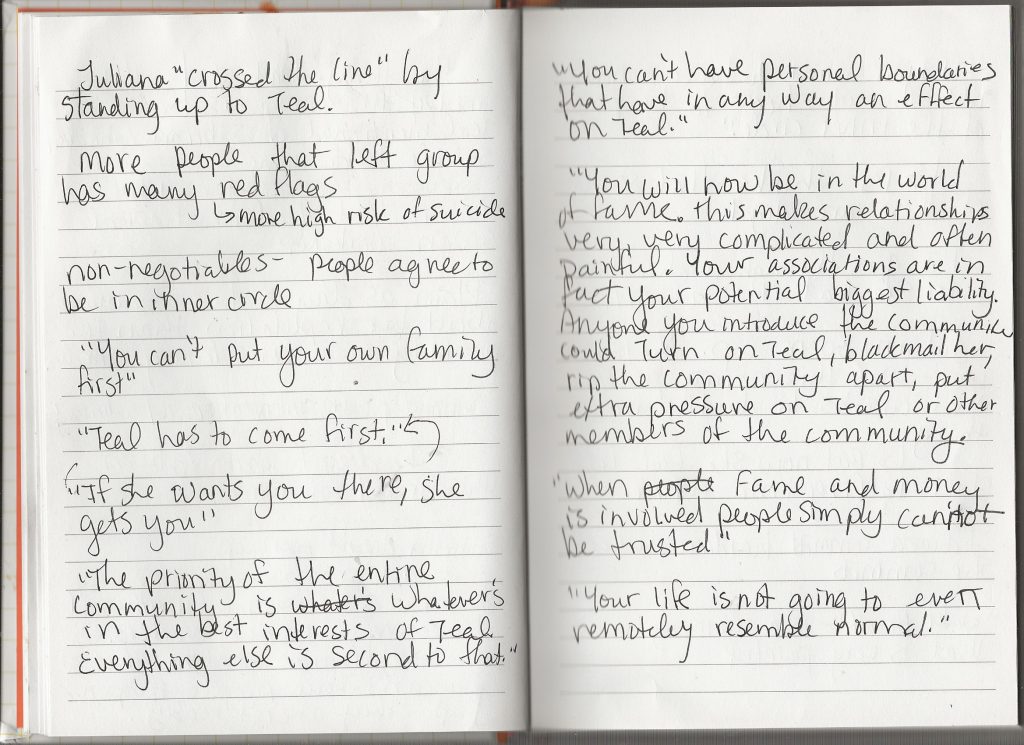 Juliana "crossed the line" by
standing up to Teal.
More people that left group
has many red flags
↳ more high risk of suicide
non-negotiables - people agree to
be in inner circle
"You can't put your own family
first"
"Teal has to come first."
"If she wants you there, she
gets you"
"The priority of the entire
community is whater's whatever's
in the best interests of Teal.
Everything else is second to that."
"You can't have personal boundaries
that have in any way an effect
on Teal."
"You will now be in the world
of fame. this makes relationships
very, very complicated and often
painful. Your associations are in
fact your potential biggest liability.
Anyone you introduce the community
could turn on Teal, blackmail her,
rip the community apart, put
extra pressure on Teal or other
members of the community.
"When people fame and money
is involved people simply cannot
be trusted"
"Your life is not going to even
remotely resemble normal."